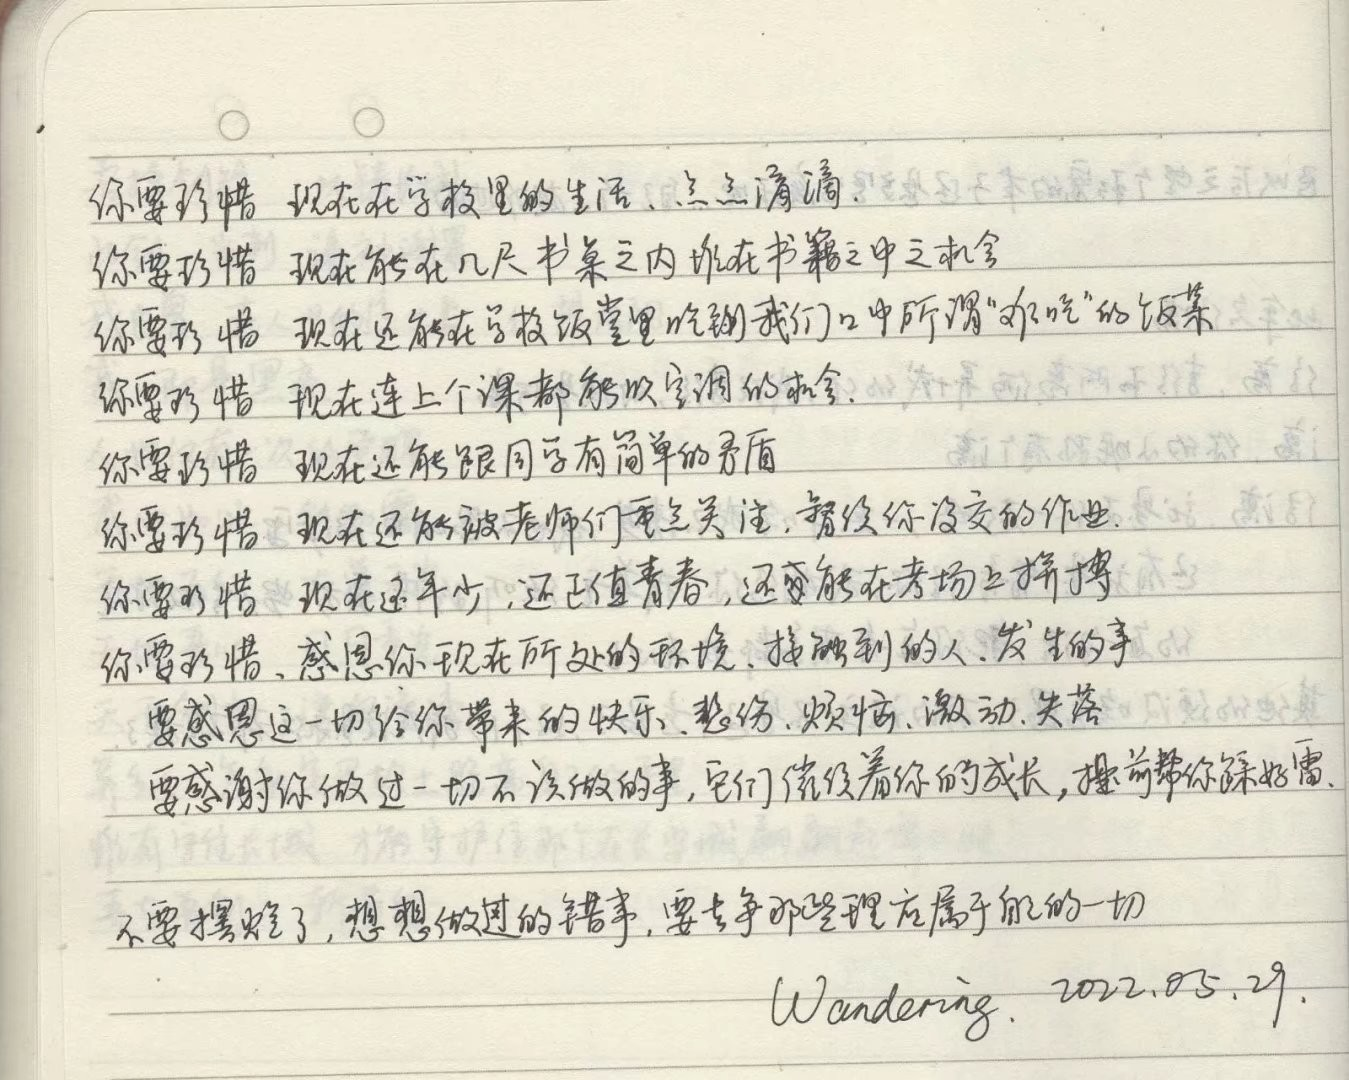 你要珍惜 现在在学校里的生活、点点滴滴.
你要珍惜 现在能在几尺书桌之内堆在书籍之中之机会
你要珍惜 现在还能在学校饭堂里吃到我们口中所谓“难吃”的饭菜
你要珍惜 现在连上个课都能吹空调的机会.
你要珍惜 现在还能跟同学有简单的矛盾
你要珍惜 现在还能被老师们重点关注,督促你没交的作业.
你要珍惜 现在还年少,还正值青春,还能在考场上拼搏
你要珍惜、感恩你现在所处的环境、接触到的人、发生的事
要感恩这一切给你带来的快乐、悲伤、烦恼、激动、失落
要感谢你做过一切不该做的事,它们催促着你的成长,提前帮你踩好雷.
不要摆烂了,想想做过的错事,要去争那些理应属于自己的一切
Wandering. 2022.05.29.